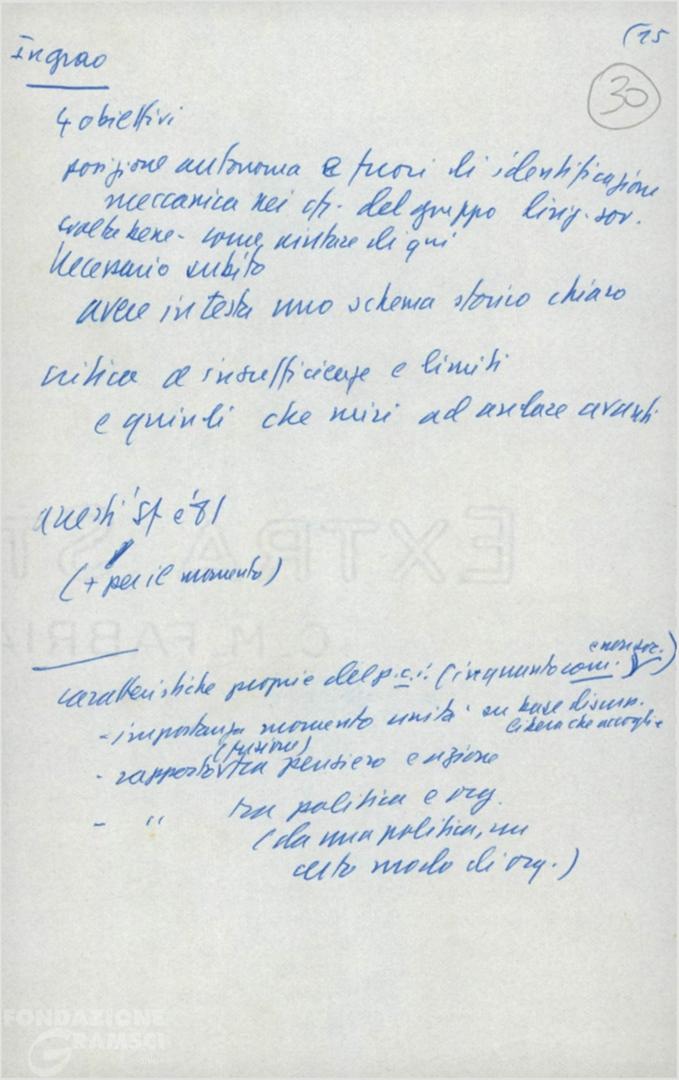 (15
30
Ingrao
4 obiettivi
posizione autonoma e fuori di identificazione
meccanica nei cfr. del gruppo dirig. sov.
svolta bene - come mutare di qui
Necessario subito
avere in testa uno schema storico chiaro
critica a insufficienze e limiti
e quindi che miri ad andare avanti
questi sf è '81
(+ per il momento)
caratteristiche proprie del p.c.i. (in quanto com. e non soc.)
- importanza momento unità su base discuss.
libera che accoglie
- rapporto (fusione) tra pensiero e azione
- " tra politica e org.
(da una politica, un
certo modo di org.)
EXTRA ST
C. M. FABRIA
FONDAZIONE
GRAMSCI